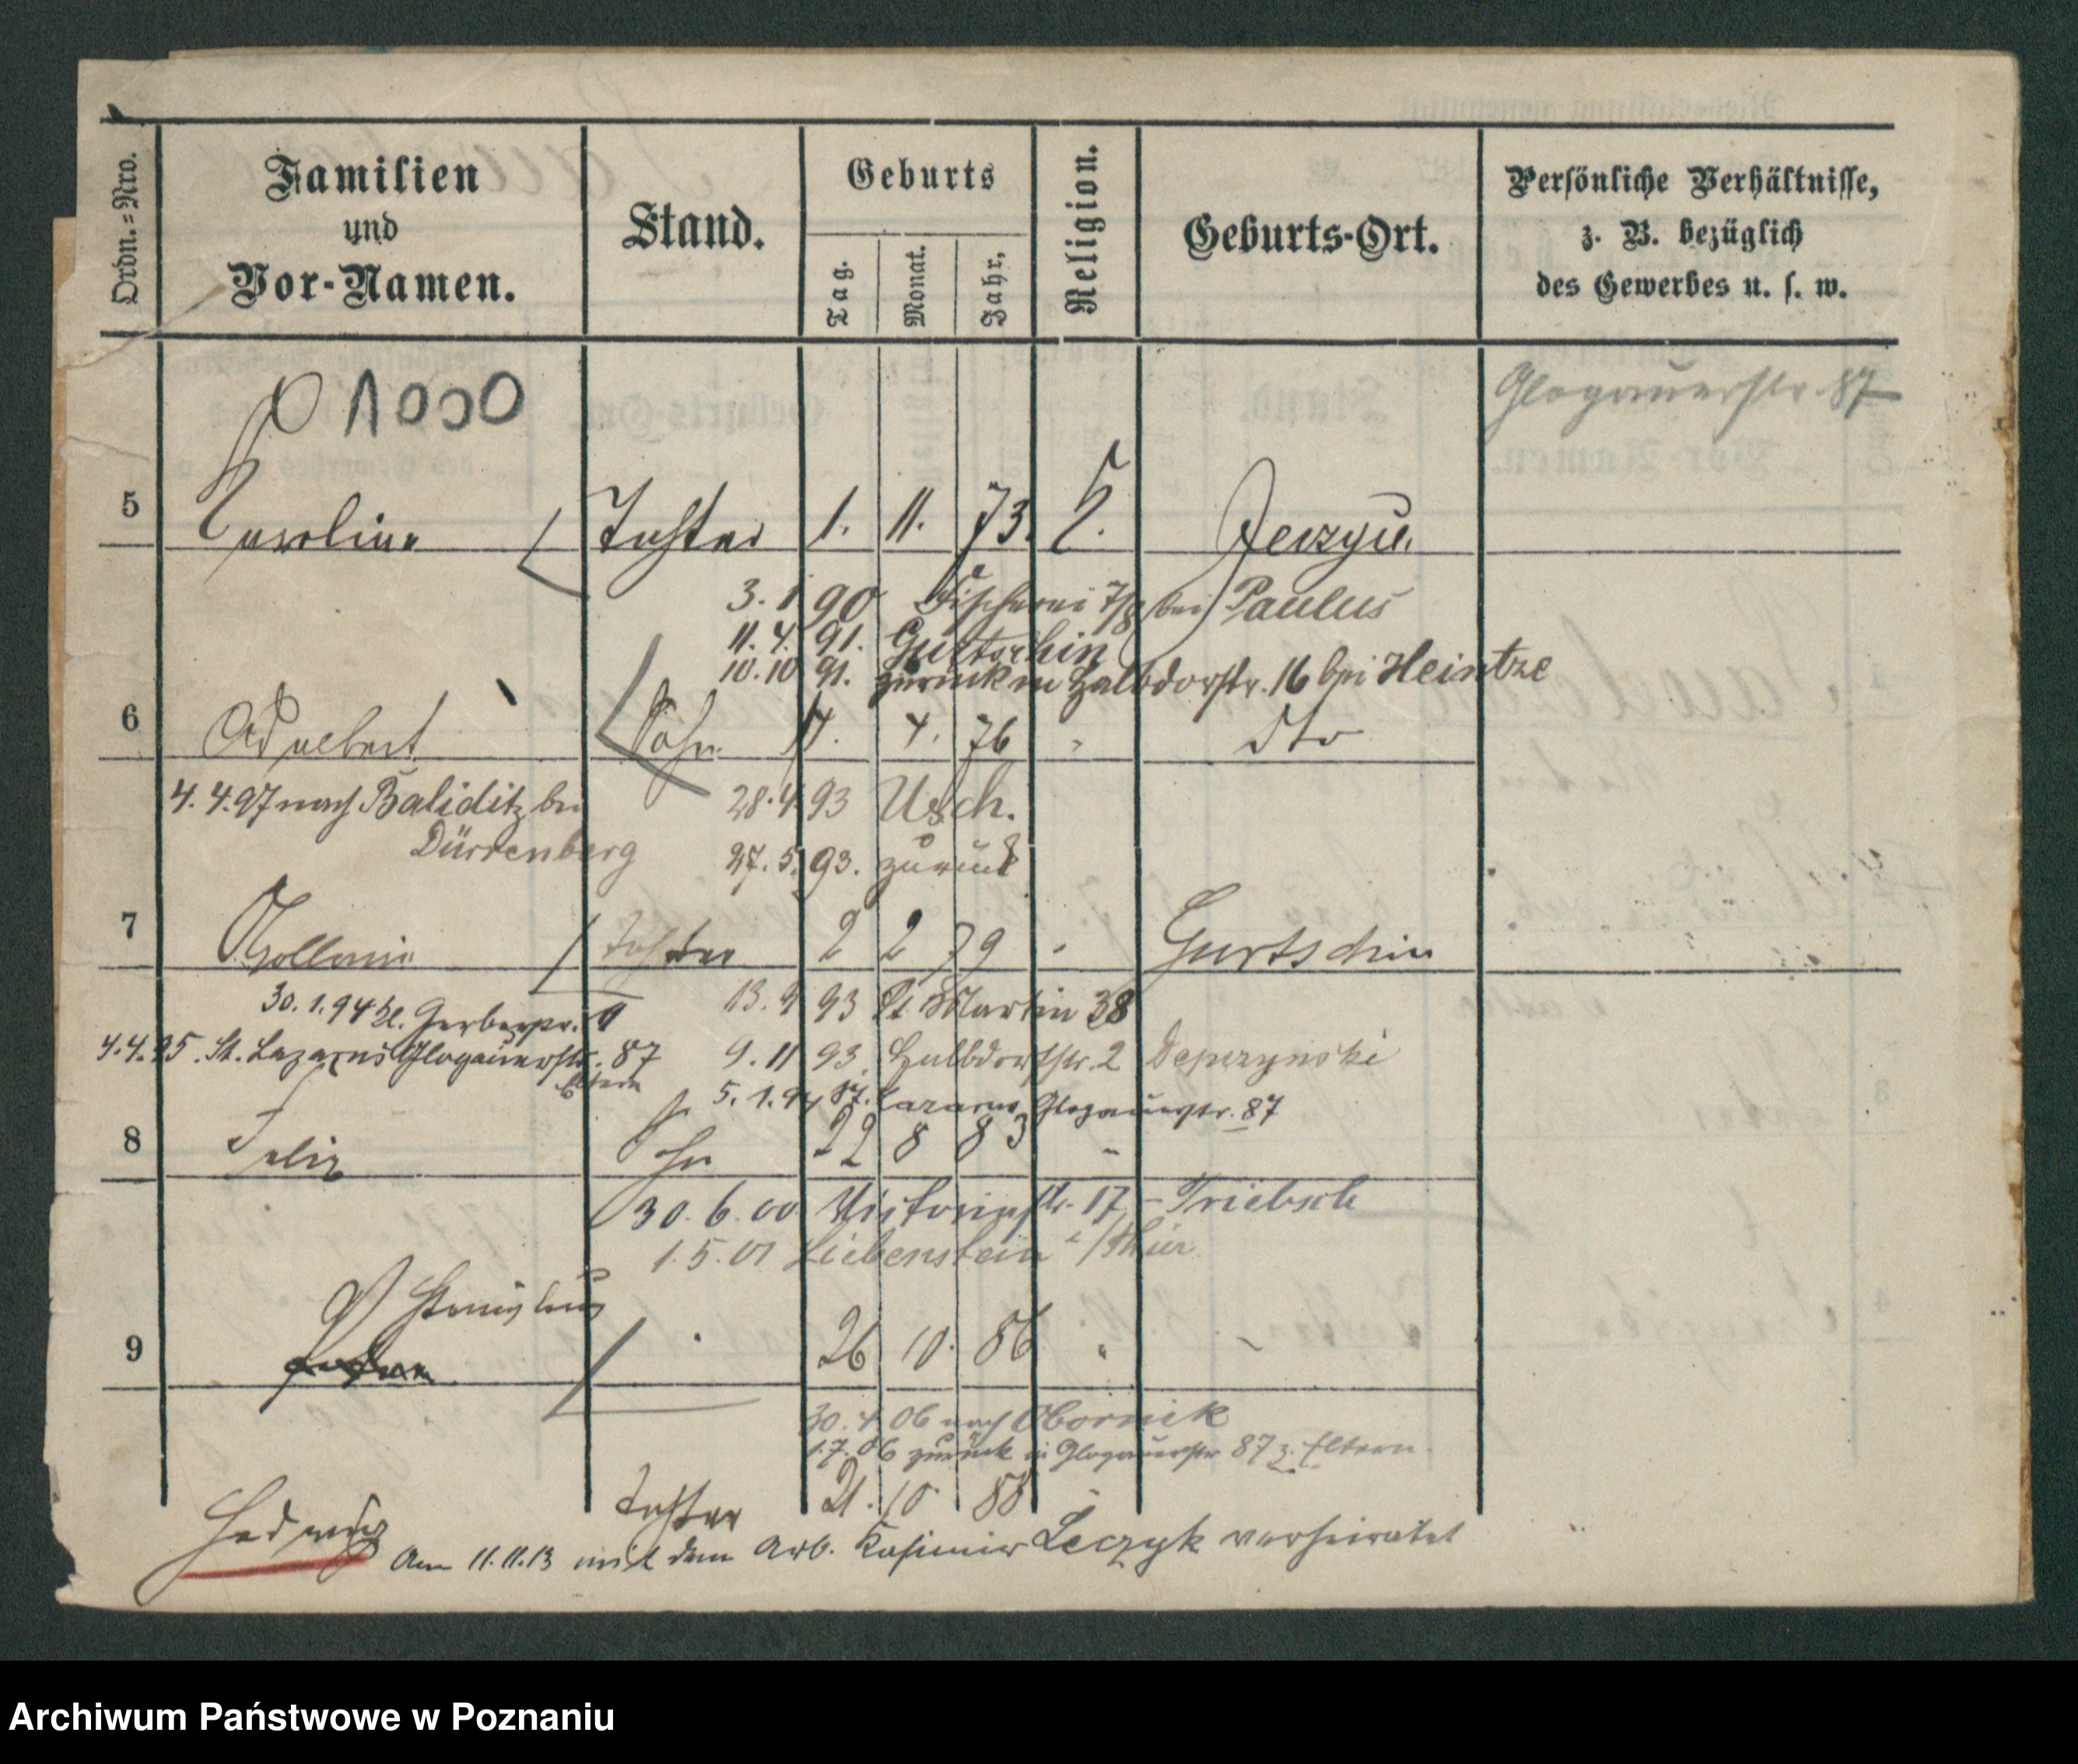 Ordn.=Nro.
Familien und Vor-Namen.
Stand.
Geburts
Tag. Monat. Jahr.
Religion.
Geburts-Ort.
Persönliche Verhältnisse, z. B. bezüglich des Gewerbes u. s. w.
1000
Glogauerstr 87
5 Karoline Tochter 1. 11. 73. k. Jerzyce.
3. 1 90 Fischerei 7/8 bei Paulus
11. 4. 91. Gurtschin
10. 10 91. zurück in Halbdorfstr. 16 bei Heintze
6 Adalbert Sohn 4. 76 " dto
4. 4. 97 nach Baliditz bei Dürrenberg
28. 4 93 Usch.
27. 5. 93. zurück
7 Apollonia Tochter 2 2 79 " Gurtschin
30. 1. 94 kl. Gerberstr. 9
13. 9 93 St. Martin 38
4. 4. 95. St. Lazarus Glogauerstr. 87 Eltern
9. 11 93. Halbdorfstr. 2 Depczynski
5. 1. 94 St. Lazarus Glogauerstr. 87
8 Felix Sohn 22 8 83 "
30. 6. 00 Victoriastr. 17 - Triebsch
1. 5. 01 Liebenstein i/Thür
Stanislaus
9 26 10. 86 "
30. 4 06 nach Obornik
1. 7. 06 zurück in Glogauerstr 87 z. Eltern
Hedwig Tochter 21. 10 88
Am 11. 11. 13 mit dem Arb. Kasimir Leczyk verheiratet
Archiwum Państwowe w Poznaniu